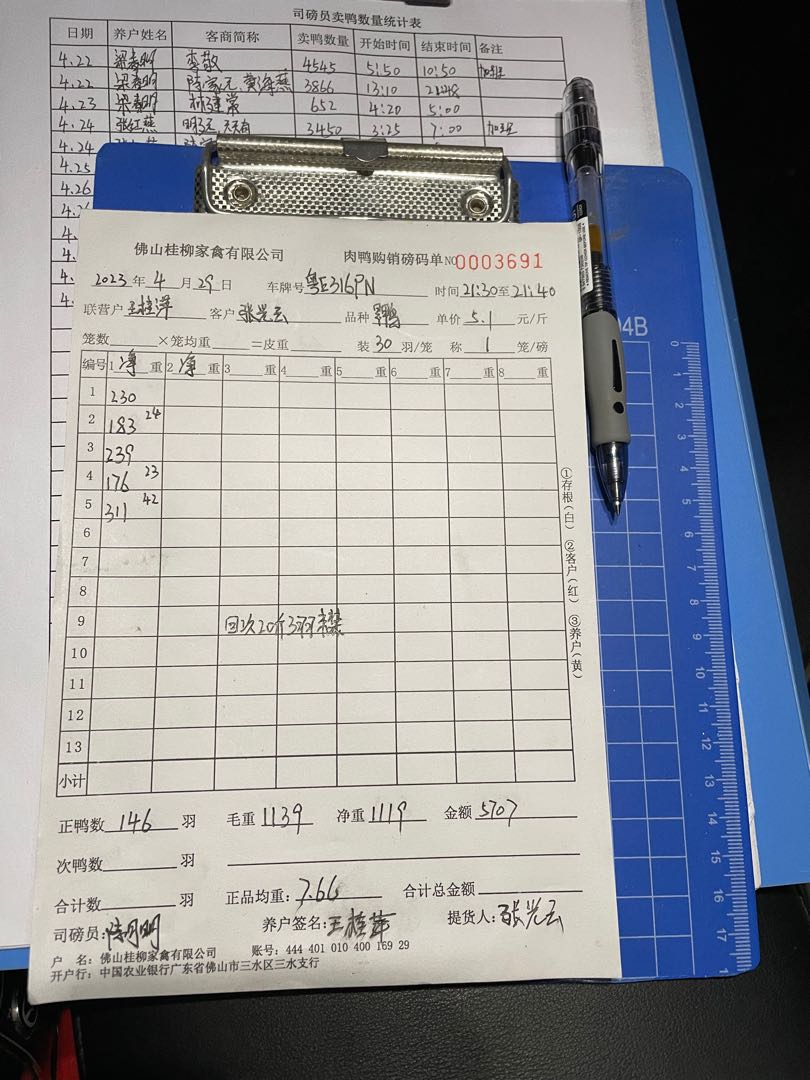 司磅员卖鸭数量统计表
日期 养户姓名 客商简称 卖鸭数量 开始时间 结束时间 备注
4.22 李敬 4545 5:50 10:50 加班
4.22 3866 13:10 21:48
4.23 652 4:20 5:00
4.24 张红燕 3450 3:25 7:00 加班
4.24
4.25
4.26
佛山桂柳家禽有限公司 肉鸭购销磅码单 NO 0003691
2023 年 4 月 29 日 车牌号 粤E316PN 时间 21:30 至 21:40
联营户 王桂萍 客户 张光云 品种 单价 5.1 元/斤
笼数 ×笼均重 =皮重 装 30 羽/笼 称 1 笼/磅
编号 1 净 重 2 净 重 3 重 4 重 5 重 6 重 7 重 8 重
1 230
2 183 24
3 239
4 176 23
5 311 42
6
7
8
9 回次20斤3羽
10
11
12
13
小计
①存根(白) ②客户(红) ③养户(黄)
正鸭数 146 羽 毛重 1139 净重 1119 金额 5707
次鸭数 羽
合计数 羽 正品均重: 7.66 合计总金额
司磅员: 陈月明 养户签名: 王桂萍 提货人: 张光云
户 名: 佛山桂柳家禽有限公司 账号: 444 401 010 400 169 29
开户行: 中国农业银行广东省佛山市三水区三水支行
04B
0 1 2 3 4 5 6 7 8 9 10 11 12 13 14 15 16 17